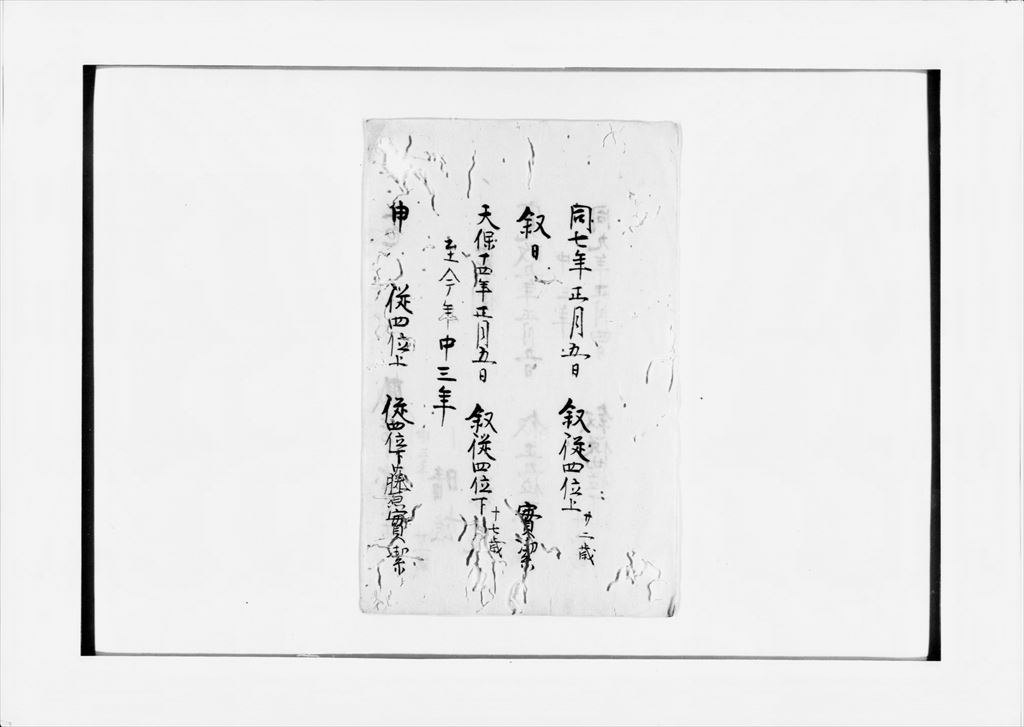 同七年正月五日 叙従四位上 廿二歳
叙日 實潔
天保十四年正月五日 叙従四位下 十七歳
至今年中三年
申 従四位上 従四位下藤原實潔